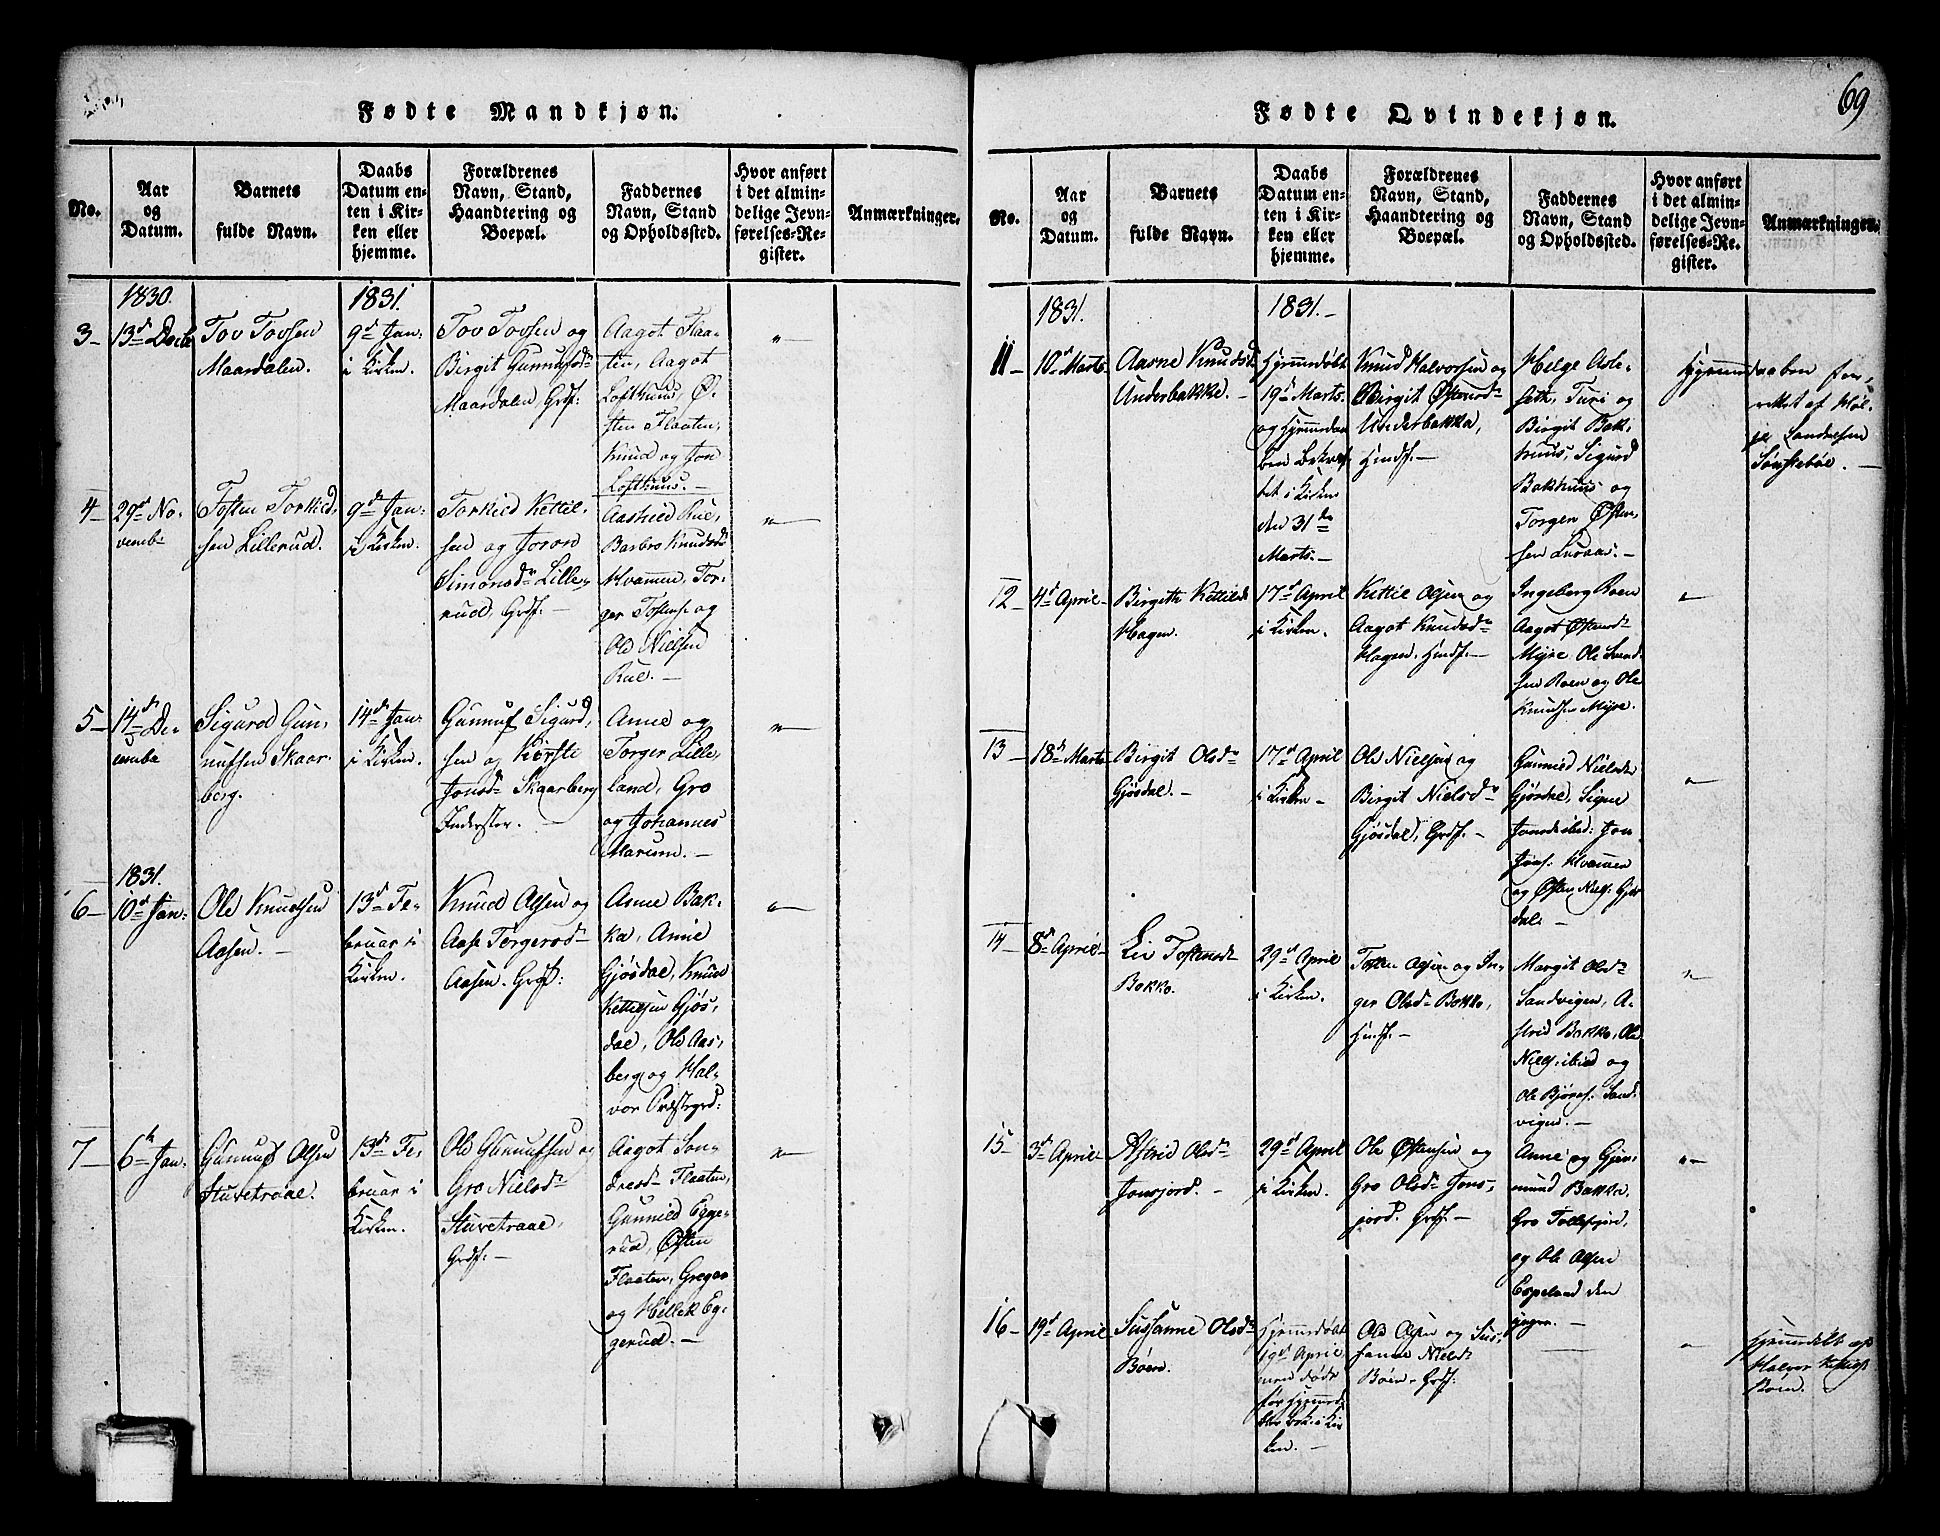 Fødte Mandkjøn.
No.
Aar
og
Datum.
Barnets
fulde Navn.
Daabs
Datum en-
ten i Kir-
ken eller
hjemme.
Forældrenes
Navn, Stand,
Haandtering og
Boepæl.
Faddernes
Navn, Stand
og Opholdssted.
Hvor anført
i det almin-
delige Jevn-
førelses-Re-
gister.
Anmærkninger.
1830.
3
13d Decbr
Tov Tovsen
Maardalen.
1831.
9d Jan-
i Kirken.
Tov Tovsen og
Birgit Gunnufsdr
Maardalen, Grdf:
Aagot Flaa-
ten, Aagot
Lofthuus, Ø-
sten Flaaten,
Knud og Jon
Lofthuus.
4
29d No-
vembr
Tosten Torkild-
sen Lillerud.
9d Jan-
i Kirken.
Torkild Kettil-
sen og Joron
Simonsdr Lille-
rud, Grdf.
Aashild Rue,
Barbro Knudsdr
Kvammen, Tor-
ger Tostens. og
Ole Nielsen
Rue.
5
14d De-
cembr
Sigurd Gun-
nufsen Skaar-
berg.
14d Jan-
i Kirken.
Gunnuf Sigurd-
sen og Kirsti
Jonsdr Skaarberg
Inderster.
Anne og
Torger Lille-
land, Gro
og Johannes
Marum.
1831.
6
10d Jan-
Ole Knudsen
Aasen.
13d Fe-
bruar i
Kirken.
Knud Olsen og
Aase Torgersd-
Aasen. Grdf:
Anne Bak-
ka, Anne
Gjøsdal, Knud
Kettilsen Gjøs-
dal, Ole Aas-
berg og Hal-
vor Præstegrd:
7
6te Jan-
Gunnuf Olsen
Stuvetraae.
13d Fe-
bruar i
Kirken.
Ole Gunnufsen og
Gro Nielsdr
Stuvetraae,
Grdf.
Aagot Son-
dresdr Flaaten,
Gunnild Egge-
rud, Østen
Flaaten, Gregar
og Hellek Eg-
gerud.
69
Fødte Qvindekjøn.
No.
Aar
og
Datum.
Barnets
fulde Navn.
Daabs
Datum en-
ten i Kir-
ken eller
hjemme.
Forældrenes
Navn, Stand,
Haandtering og
Boepæl.
Faddernes
Navn, Stand
og Opholdssted.
Hvor anført
i det almin-
delige Jevn-
førelses-Re-
gister.
Anmærkninger.
1831.
11
10d Marts
Aasne Knudsd.
Underbakke.
1831.
Hjemmedøbt
19d Marts.
og Hjemmedaa-
ben bekræf-
tet i Kirken
den 31te
Marts.
Knud Halvorsen og
Birgit Østensdr
Underbakka,
Husf.
Helge Asle-
seth, Turi og
Birgit Bak-
huus, Sigurd
Bakhuus og
Torgen Østen-
sen Luraas.
Hjemmedaaben for-
rettet af
Sondresen
Sønstebøe.
12
4d April
Birgith Kettilsdr
Hagen.
17d April
i Kirken.
Kettil Olsen og
Aagot Knudsdr
Hagen, Husf.
Ingeborg Roen
Aagot Østensdr
Myre, Ole Svend-
sen Roen og Ole
Knudsen Myre.
13
18d Marts
Birgit Olsdr
Gjøsdal.
17d April
i Kirken
Ole Nielsen og
Birgit Nielsdr
Gjøsdal, Grdf.
Gunnild Nielsdr
Gjøsdal, Signe
Jonsdr ibid: Jon
Jons. Kvammen
og Østen Niels. Gjøs-
dal.
14
8d April
Liv Tostensdr
Bokko.
29d April
i Kirken.
Tosten Olsen og In-
ger Olsdr Bokko,
Husf.
Margit Olsdr
Sandvigen, A-
strid Bokko, Ole
Niels. ibid og
Ole Bjørns. Sand-
vigen.
15
3d April
Astrid Olsdr
Jonsjord.
29d April
i Kirken.
Ole Østensen og
Gro Olsdr Jons-
jord, Grdf.
Anne og Gjer-
mund Bakka,
Gro Tollefsjord,
og Ole Olsen
Espeland den
yngre.
16
19d April
Susanne Olsdr
Bøen.
Hjemmedøbt
19d April
men døde
før Hjemmed.
blev bek. i Kir-
ken.
Ole Olsen og Sus-
sanne Nielsdr
Bøen, Grdf.
Hjemmedøbt af
Halvor Kittils.
Bøen.